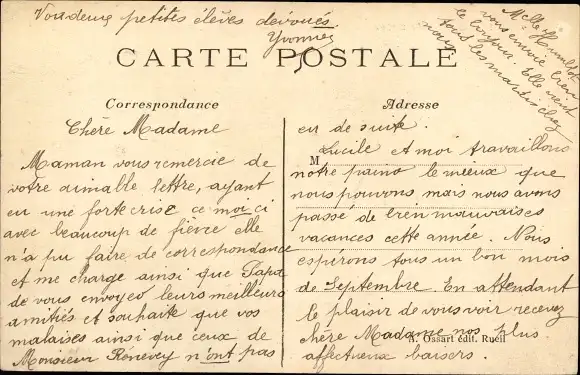 Vos deux petites élèves dévoués.
Yvonne
Melle Humblot
vous envoie bien
le bonjour. Elle vient
tous les mardis chez
nous.
CARTE POSTALE
Correspondance
Chère Madame
Maman vous remercie de
votre aimable lettre, ayant
eu une forte crise ce moi ci
avec beaucoup de fièvre elle
n'a pu faire de correspondance
et me charge ainsi que Papa
de vous envoyez leurs meilleurs
amitiés et souhaite que vos
malaises ainsi que ceux de
Monsieur Rénevey n'ont pas
Adresse
eu de suite.
M
Lucile et moi travaillons
notre piano le mieux que
nous pouvons mais nous avons
passé de bien mauvaises
vacances cette année. Nous
espérons tous un bon mois
de Septembre. En attendant
le plaisir de vous voir recevez
chère Madame nos plus
affectueux baisers.
A. Ossart édit. Rueil